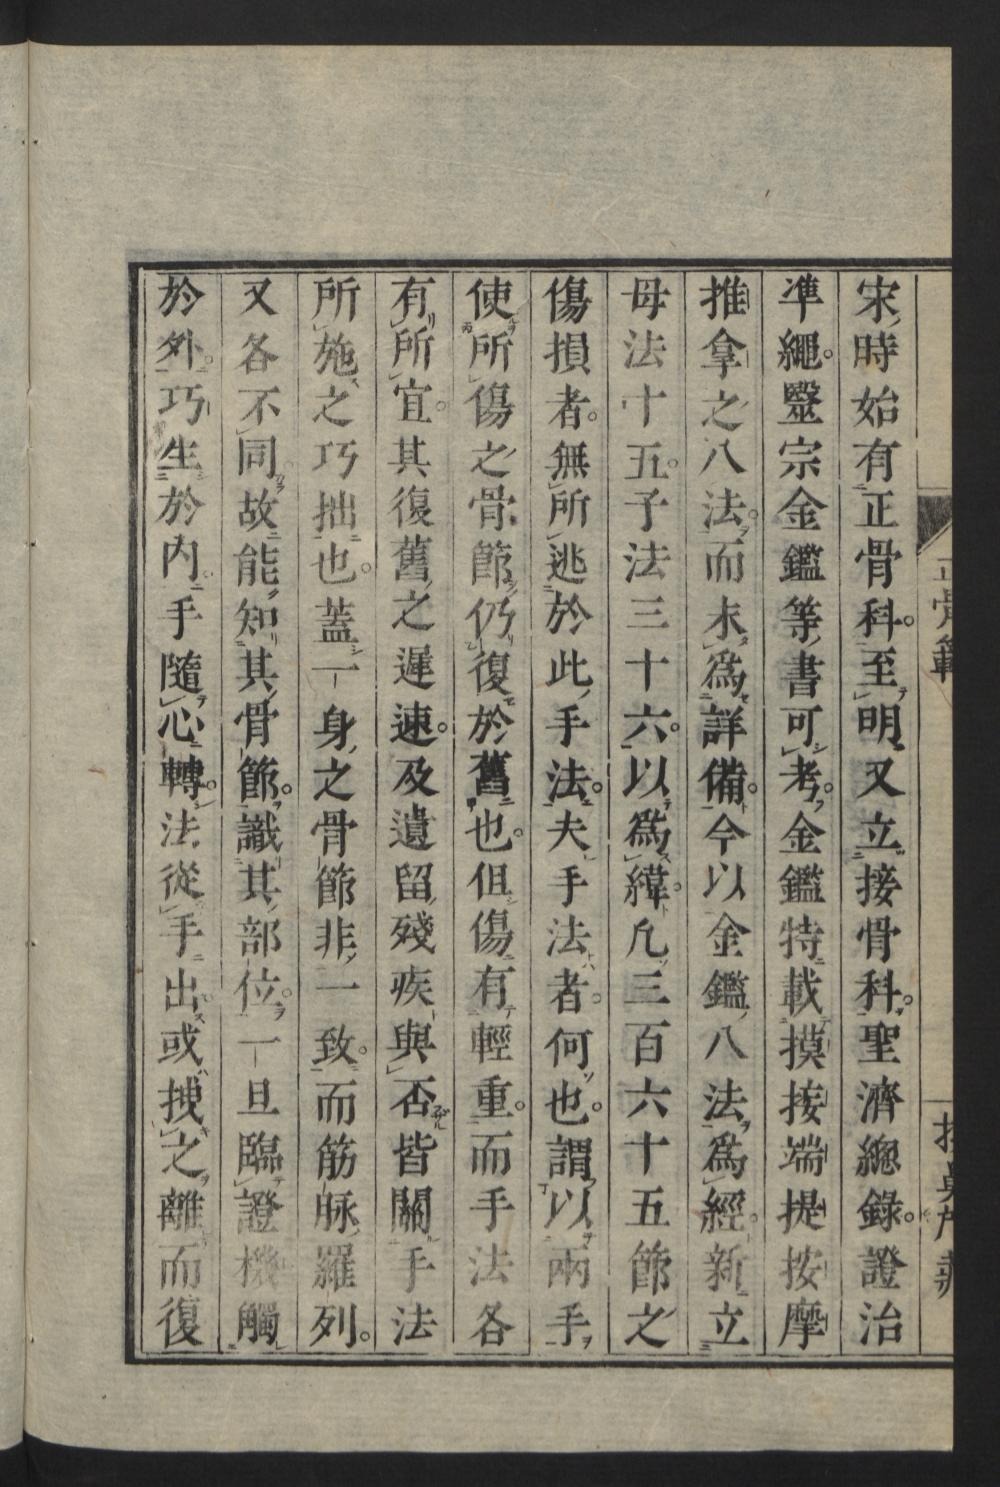 宋時始有正骨科。至明又立接骨科。聖濟總錄。證治
準繩。毉宗金鑑等書可考。金鑑特載摸按端提按摩
推拿之八法。而未爲詳備。今以金鑑八法爲經。新立
母法十五。子法三十六。以爲緯。凡三百六十五節之
傷損者。無所逃於此手法。夫手法者。何也。謂以兩手
使所傷之骨節仍復於舊也。但傷有輕重。而手法各
有所宜。其復舊之遲速。及遺留殘疾與否皆關手法
所施之巧拙也。蓋一身之骨節非一致。而筋脉羅列。
又各不同。故能知其骨節。識其部位。一旦臨證機觸
於外。巧生於內。手隨心轉。法從手出。或拽之離而復